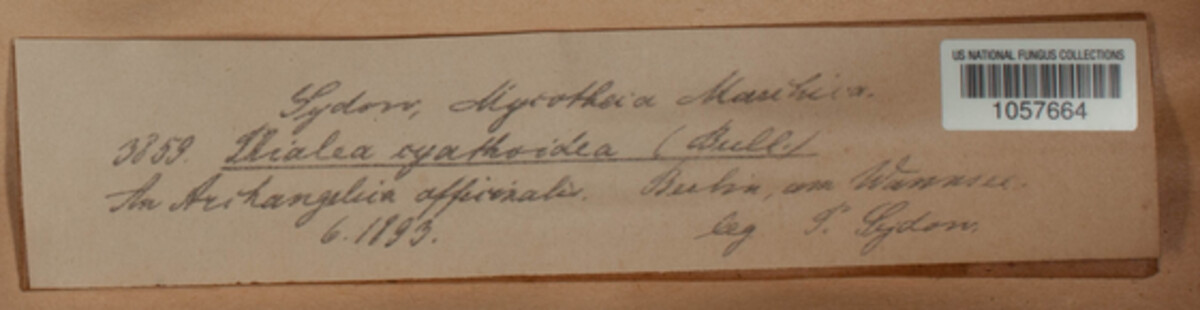 US NATIONAL FUNGUS COLLECTIONS
1057664
Sydow, Mycotheca Marchica.
3859. Phialea cyathoidea (Bull.)
An Archangelica officinalis. Berlin, am Wannsee.
6. 1893. leg P. Sydow.